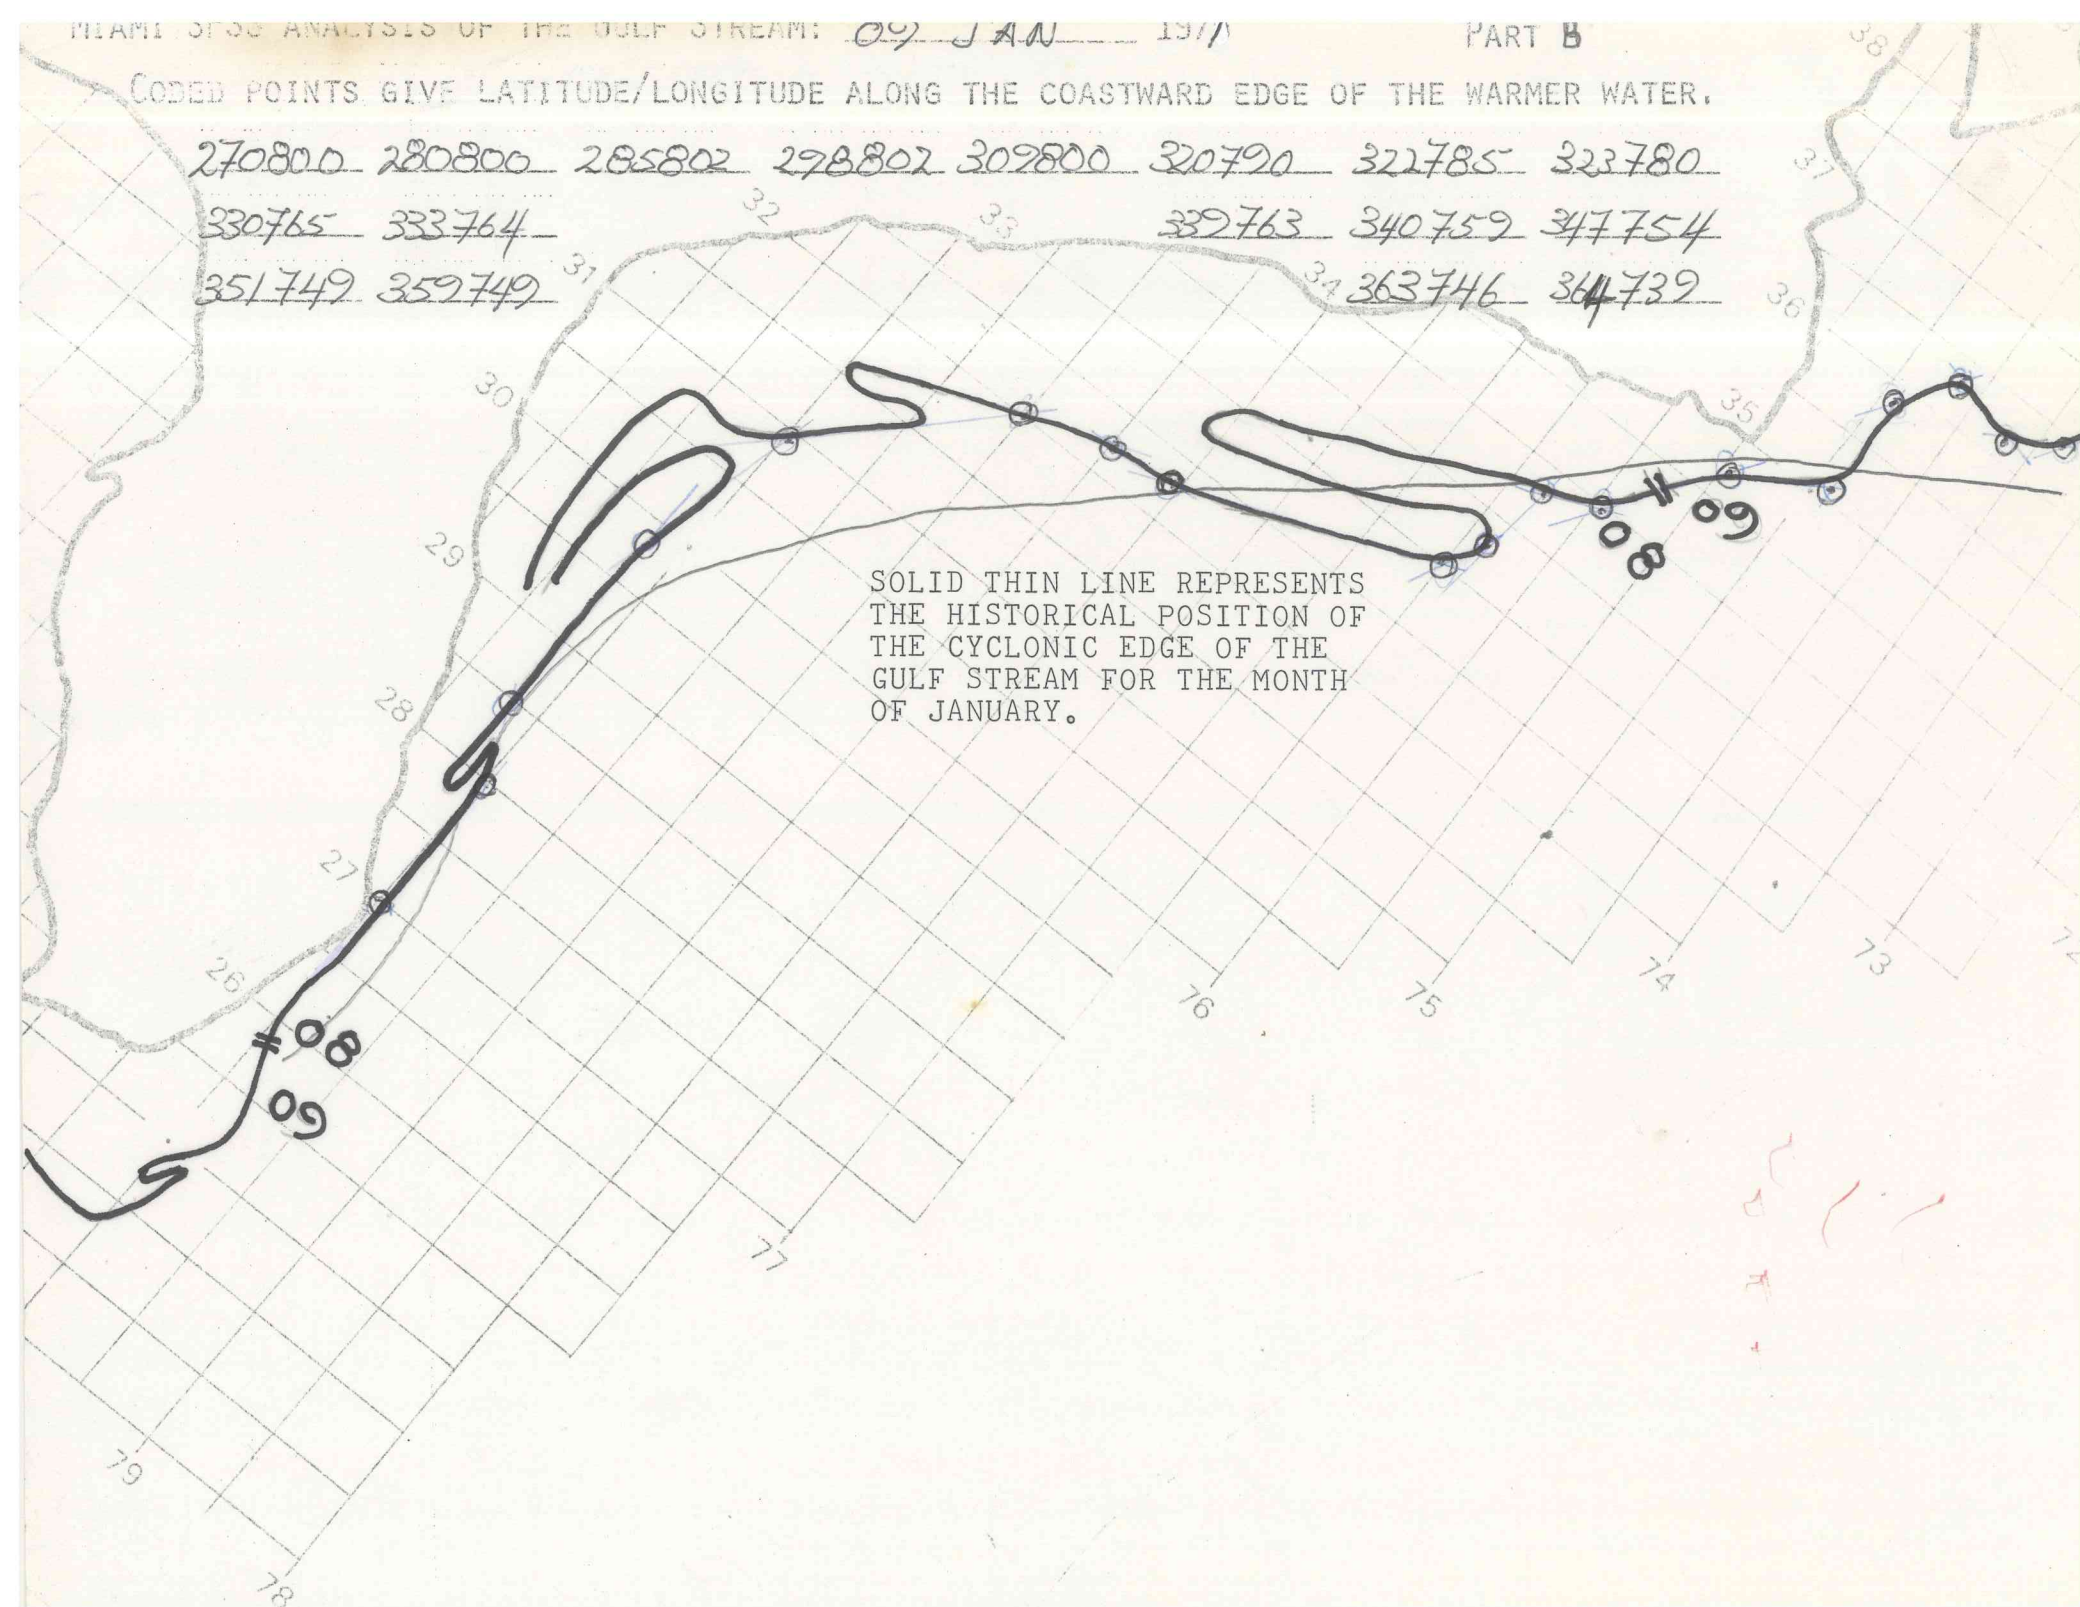 MIAMI SFSS ANALYSIS OF THE GULF STREAM: 09 JAN 1977 PART B
CODED POINTS GIVE LATITUDE/LONGITUDE ALONG THE COASTWARD EDGE OF THE WARMER WATER.
270800 280800 285802 298802 309800 320790 322785 323780
330765 333764 339763 340759 347754
351749 359749 363746 364739
38
37
36
35
34
33
32
31
30
29
28
27
26
08
09
08
09
SOLID THIN LINE REPRESENTS
THE HISTORICAL POSITION OF
THE CYCLONIC EDGE OF THE
GULF STREAM FOR THE MONTH
OF JANUARY.
72
73
74
75
76
77
79
78